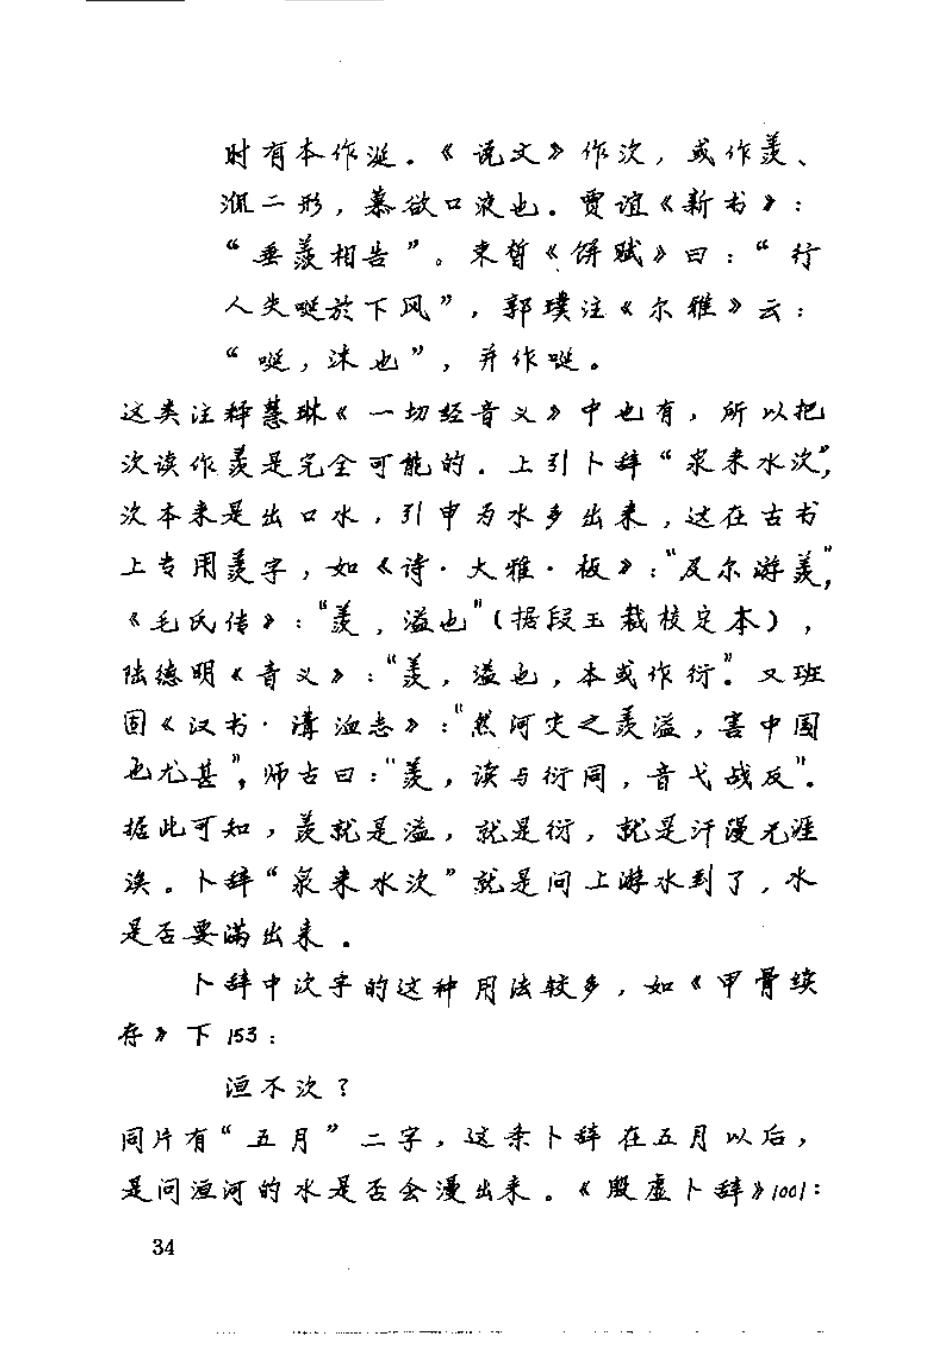 时有本作涎。《说文》作㳄，或作羡、
㳶二形，慕欲口液也。贾谊《新书》：
“垂羡相告”。束皙《饼赋》曰：“行
人失唌於下风”，郭璞注《尔雅》云：
“唌，沫也”，并作唌。
这类注释慧琳《一切经音义》中也有，所以把
㳄读作羡是完全可能的。上引卜辞“泉来水㳄”，
㳄本来是出口水，引申为水多出来，这在古书
上专用羡字，如《诗·大雅·板》：“及尔游羡”，
《毛氏传》：“羡，溢也”（据段玉裁校定本），
陆德明《音义》：“羡，溢也，本或作衍”。又班
固《汉书·溝洫志》：“然河灾之羡溢，害中国
也尤甚”，师古曰：“羡，读与衍同，音弋战反”。
据此可知，羡就是溢，就是衍，就是汗漫无涯
涘。卜辞“泉来水㳄”就是问上游水到了，水
是否要满出来。
卜辞中㳄字的这种用法较多，如《甲骨续
存》下153：
洹不㳄？
同片有“五月”二字，这条卜辞在五月以后，
是问洹河的水是否会漫出来。《殷虚卜辞》1001：
34